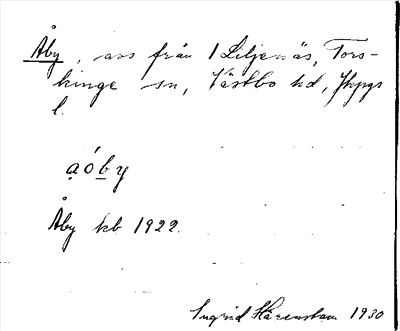 Åby, avs från 1 Liljenäs, Tors-
kinge sn, Västbo hd, Jkpgs
l.
a̤óby
Åby kb 1922.
Ingrid Härenstam 1930